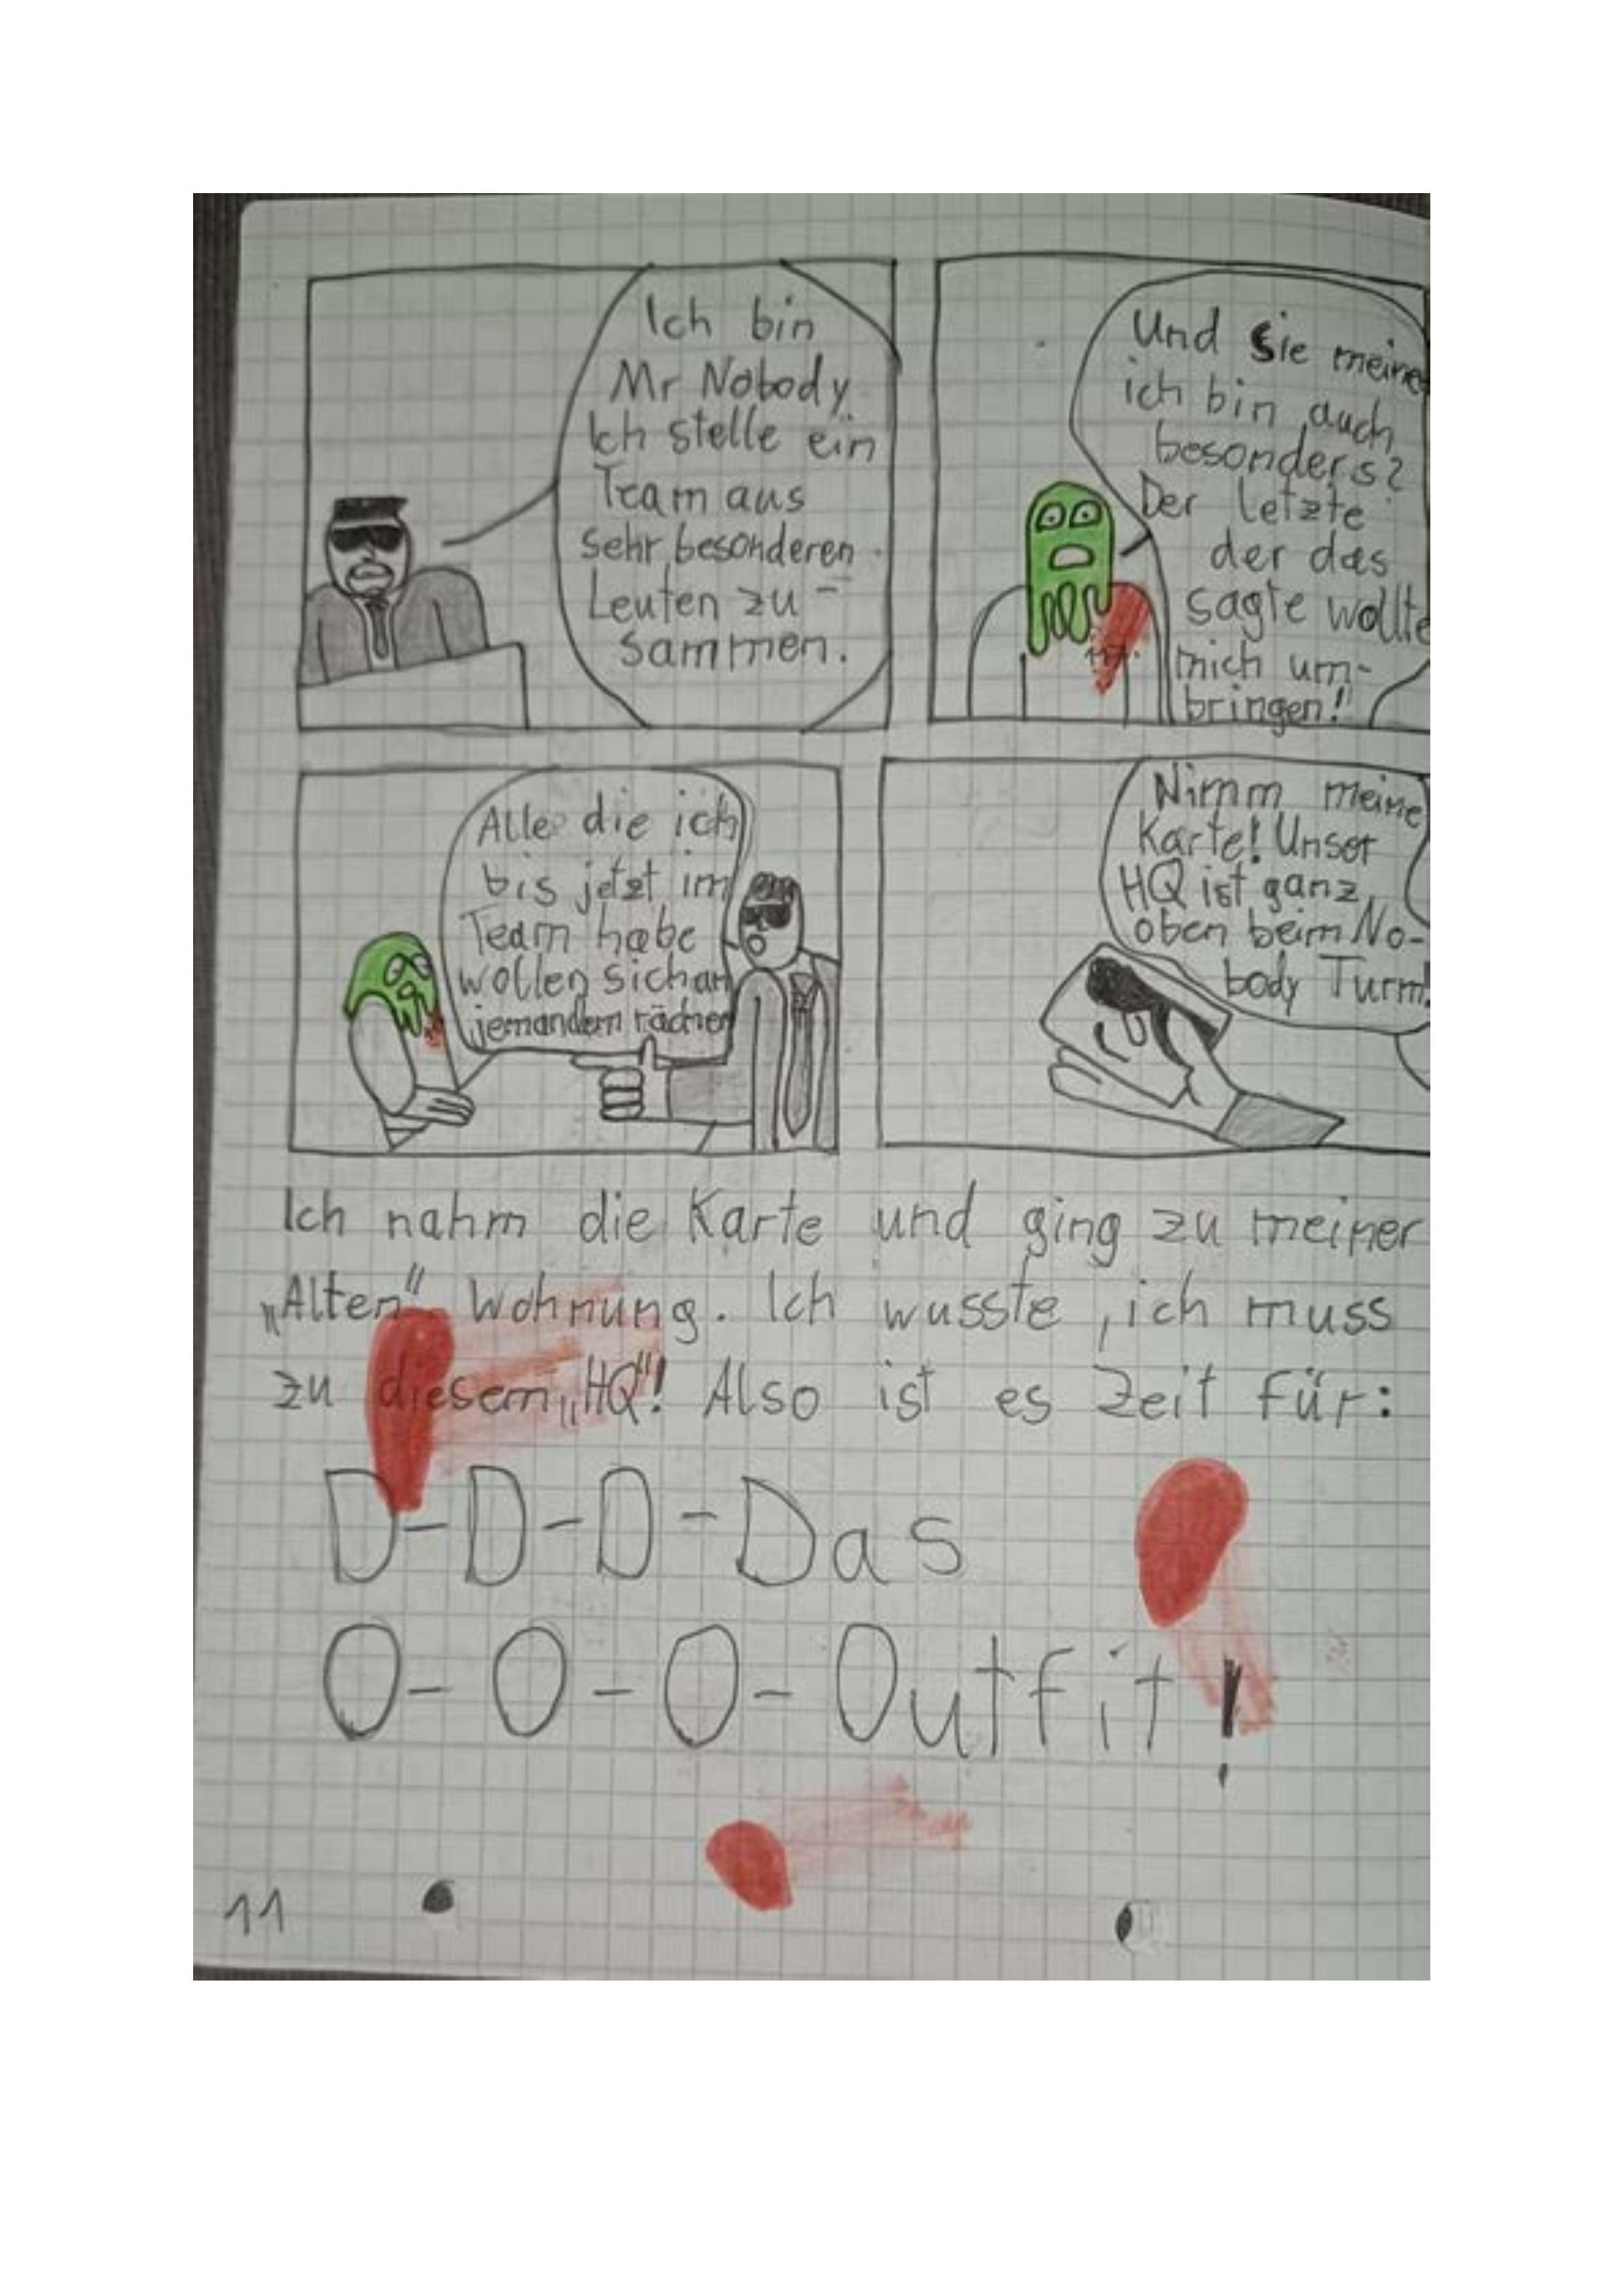 Ich bin
Mr Nobody.
Ich stelle ein
Team aus
sehr besonderen
Leuten zu-
sammen.
Und Sie meinen
ich bin auch
besonders?
Der letzte
der das
sagte wollte
mich um-
bringen!
Alle die ich
bis jetzt im
Team habe
wollen sich an
jemandem rächen
Nimm meine
Karte! Unser
HQ ist ganz
oben beim No-
body Turm!
Ich nahm die Karte und ging zu meiner
„Alten“ Wohnung. Ich wusste, ich muss
zu diesem „HQ“! Also ist es Zeit für:
D-D-D-Das
O-O-O-Outfit!
11